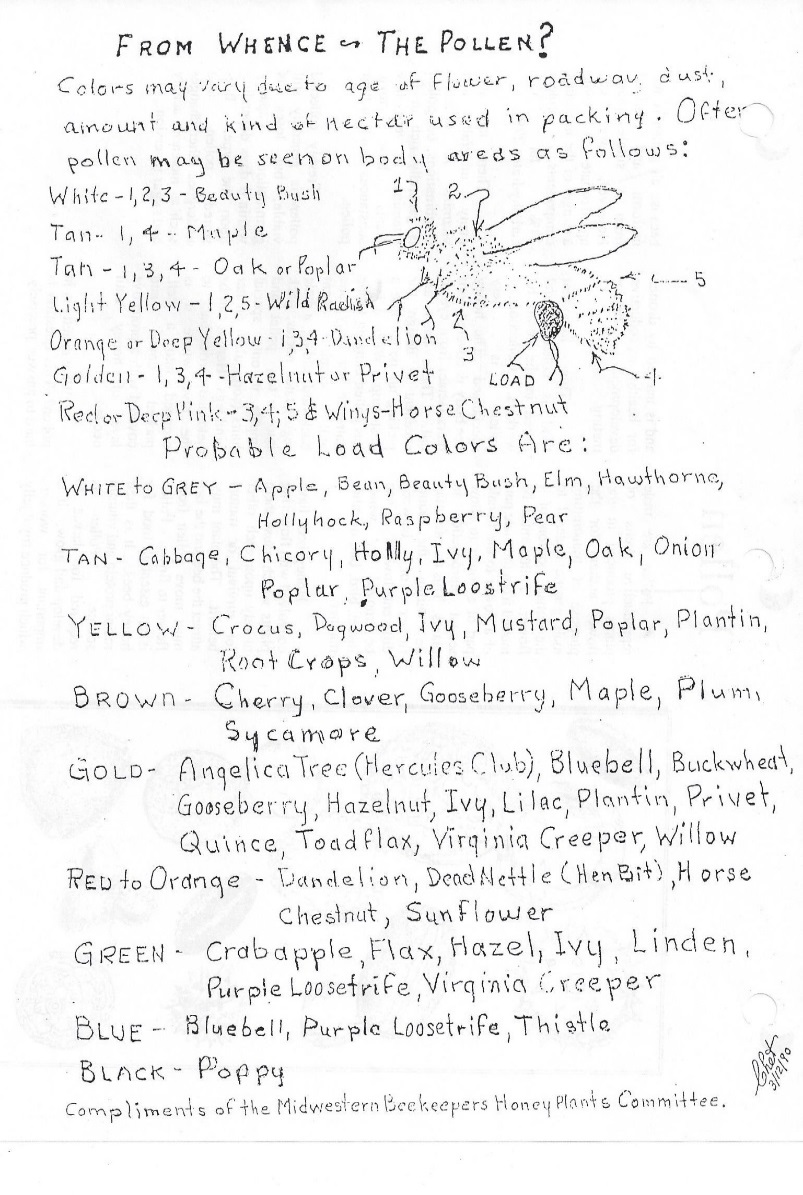 FROM WHENCE ~ THE POLLEN?
Colors may vary due to age of flower, roadway dust,
amount and kind of nectar used in packing. Often
pollen may be seen on body areas as follows:
White - 1, 2, 3 - Beauty Bush
Tan - 1, 4 - Maple
Tan - 1, 3, 4 - Oak or Poplar
Light Yellow - 1,2,5 - Wild Radish
Orange or Deep Yellow - 1,3,4 - Dandelion
Golden - 1, 3, 4 - Hazelnut or Privet
Red or Deep Pink - 3, 4, 5 & Wings - Horse Chestnut
1
2
5
3
LOAD
4
Probable Load Colors Are:
WHITE to GREY - Apple, Bean, Beauty Bush, Elm, Hawthorne,
Hollyhock, Raspberry, Pear
TAN - Cabbage, Chicory, Holly, Ivy, Maple, Oak, Onion
Poplar, Purple Loostrife
YELLOW - Crocus, Dogwood, Ivy, Mustard, Poplar, Plantin,
Root Crops, Willow
BROWN - Cherry, Clover, Gooseberry, Maple, Plum,
Sycamore
GOLD - Angelica Tree (Hercules Club), Bluebell, Buckwheat,
Gooseberry, Hazelnut, Ivy, Lilac, Plantin, Privet,
Quince, Toadflax, Virginia Creeper, Willow
RED to Orange - Dandelion, Dead Nettle (Hen Bit), Horse
Chestnut, Sunflower
GREEN - Crabapple, Flax, Hazel, Ivy, Linden,
Purple Loosetrife, Virginia Creeper
BLUE - Bluebell, Purple Loosetrife, Thistle
BLACK - Poppy
Chet
3/12/90
Compliments of the Midwestern Beekeepers Honey Plants Committee.